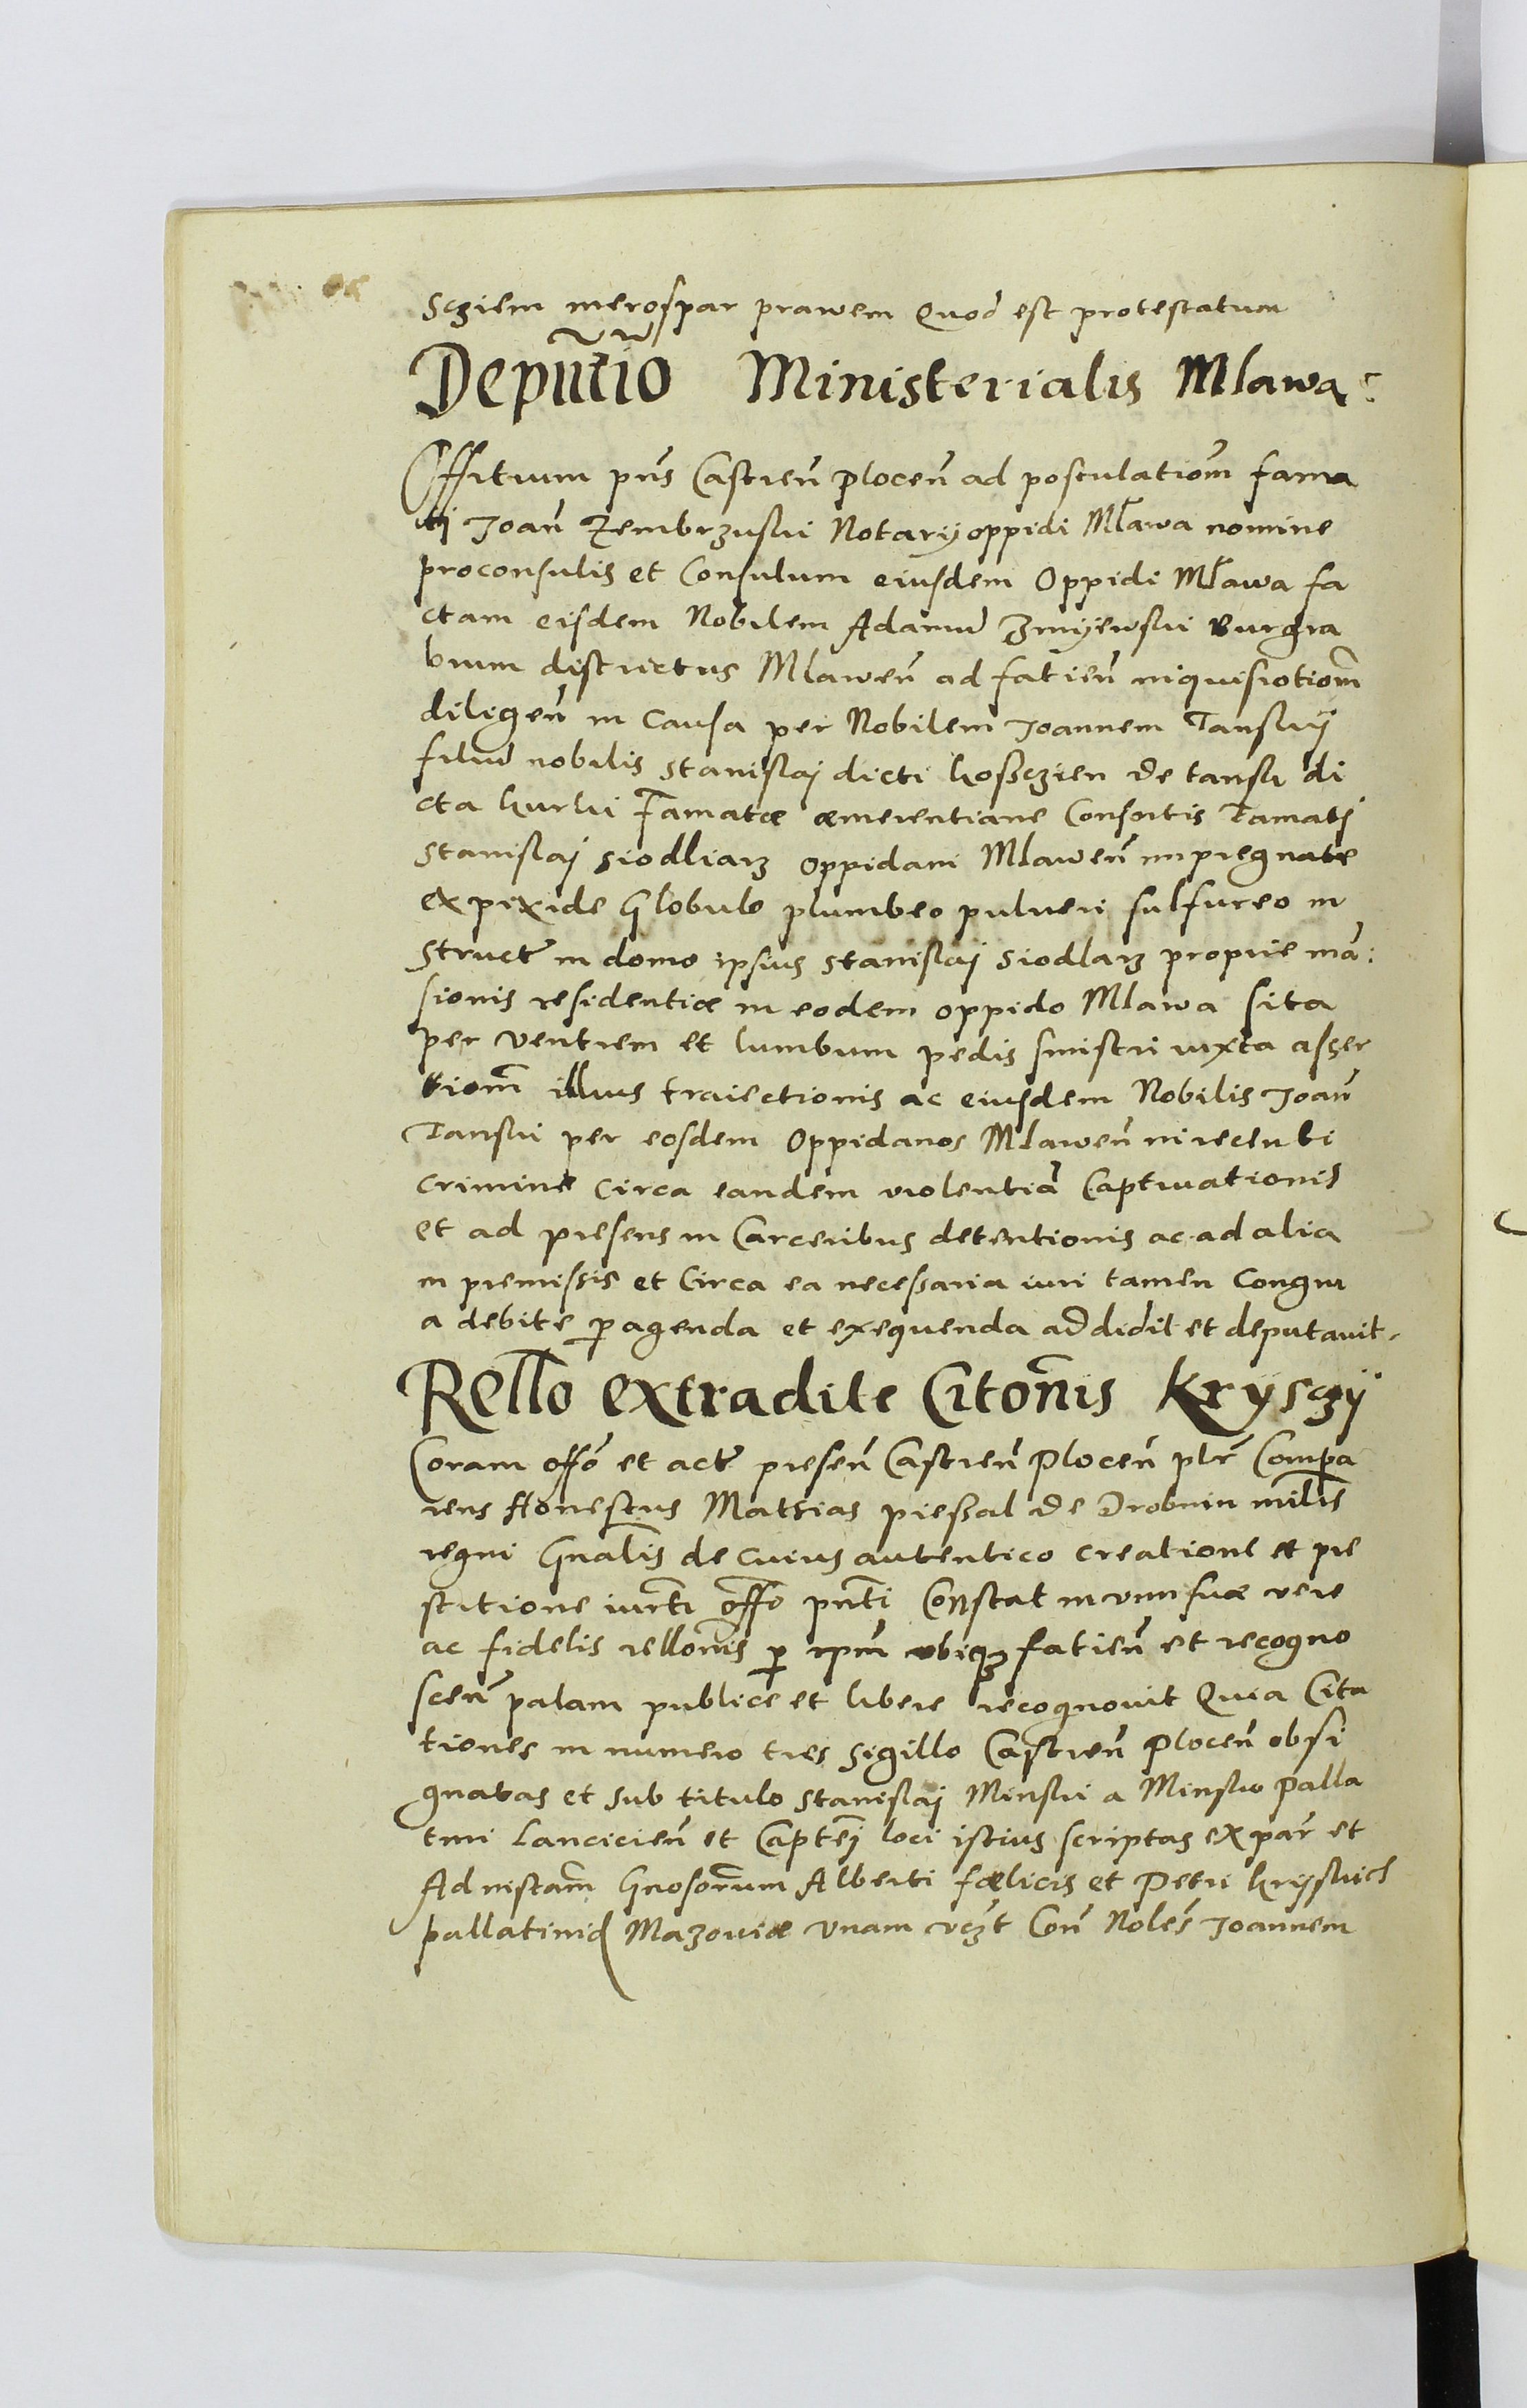 Scziem nierospar prawem Quod est protestatum
Deputio Ministerialis Mlawa
Offitium pns Castren̄ Plocen̄ ad postulatiom̄ fama
tj Joan̄ Zembrzuski Notarij oppidi Mława nomine
proconsulis et Consulum eiusdem Oppidi Mława fa
ctam eisdem Nobilem Adamū Zmijewski burgra
bium districtus Mlawen̄ ad fatien̄ inquisitiom̄
diligen̄ in causa per Nobilem Joannem Tanskij
filiū nobilis Stanislaj dicti koßczien de tansk di
cta kurki Famatæ æmerentiane Consortis Famatj
Stanislaj Siodllarz oppidani Mlawen̄ impregnate
ex pixide Globulo plumbeo pulueri sulfureo in
struct̄ in domo ipsius Stanislaj Siodlarz proprie mā:
sionis residentiæ in eodem oppido Mlawa sita
per ventrem et lumbum pedis sinistri iuxta asser
tiom̄ illius traiectionis ac eiusdem Nobilis Joan̄
Tanski per eosdem Oppidanos Mlawen̄ in recenti
crimine circa eandem violentiā Captivationis
et ad presens in Carceribus detentionis ac ad alia
in premissis et Circa ea necessaria iuri tamen Congru
a debite p̱agenda et exequenda addidit et deputavit.
Rello extradite Citonis Krysczij
Coram offō et act̄ presen̄ Castren̄ Plocen̄ plr̄ Compa
rens Honestus Mathias pießal de Drobnin mīlis
regni Gnalīs de cuius autentico creatione et pre
stitione iurtī offō pntī Constat in vim suæ vere
ac fidelis rellonīs p̱ ipm̄ vbiqz fatien̄ et recogno
scen̄ palam publice et libere recognovit Quia Cita
tiones in numero tres sigillo Castren̄ Plocen̄ obsi
gnatas et sub titulo Stanislaj Minski a Minsko Palla
tini Lancicien̄ et Captēj loci istius scriptas ex par̄ et
Ad instam̄ Gnosorūm Alberti fælicis et Petri Krijskich
pallatinid Mazoviæ vnam vczt Con̄ Noles̄ Joannem